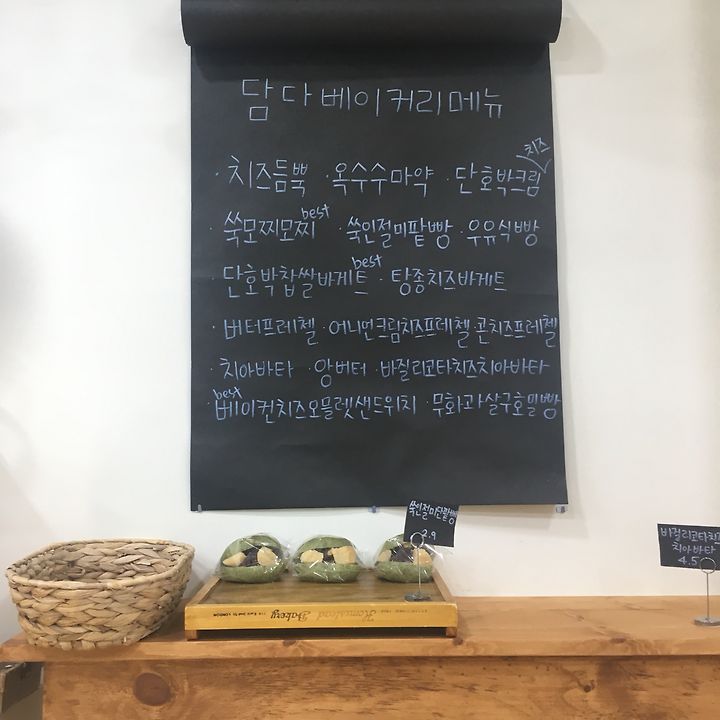 담다베이커리메뉴
치즈
· 치즈듬뿍 · 옥수수마약 · 단호박크림
best
· 쑥모찌모찌 · 쑥인절미팥빵 · 우유식빵
best
· 단호박찹쌀바게트 · 탕종치즈바게트
· 버터프레첼 · 어니언크림치즈프레첼 · 콘치즈프레첼
· 치아바타 · 앙버터 · 바질리코타치즈치아바타
best
· 베이컨치즈오믈렛샌드위치 · 무화과살구호밀빵
쑥인절미단팥빵
2.9
바질리코타치즈
치아바타
4.5
Homestead Bakery